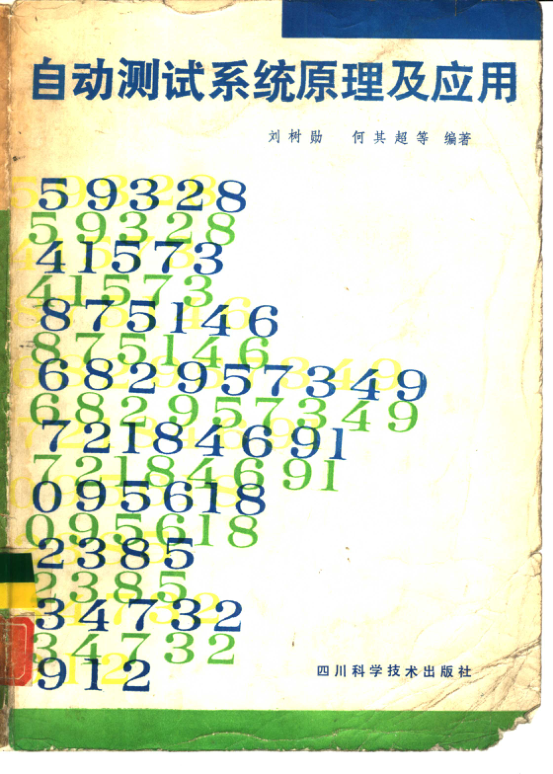 自动测试系统原理及应用
刘树勋 何其超等 编著
59328
59328
41573
41573
875146
875146
682957349
682957349
721844691
721844691
095618
095618
2385
2385
34732
34732
912
四川科学技术出版社